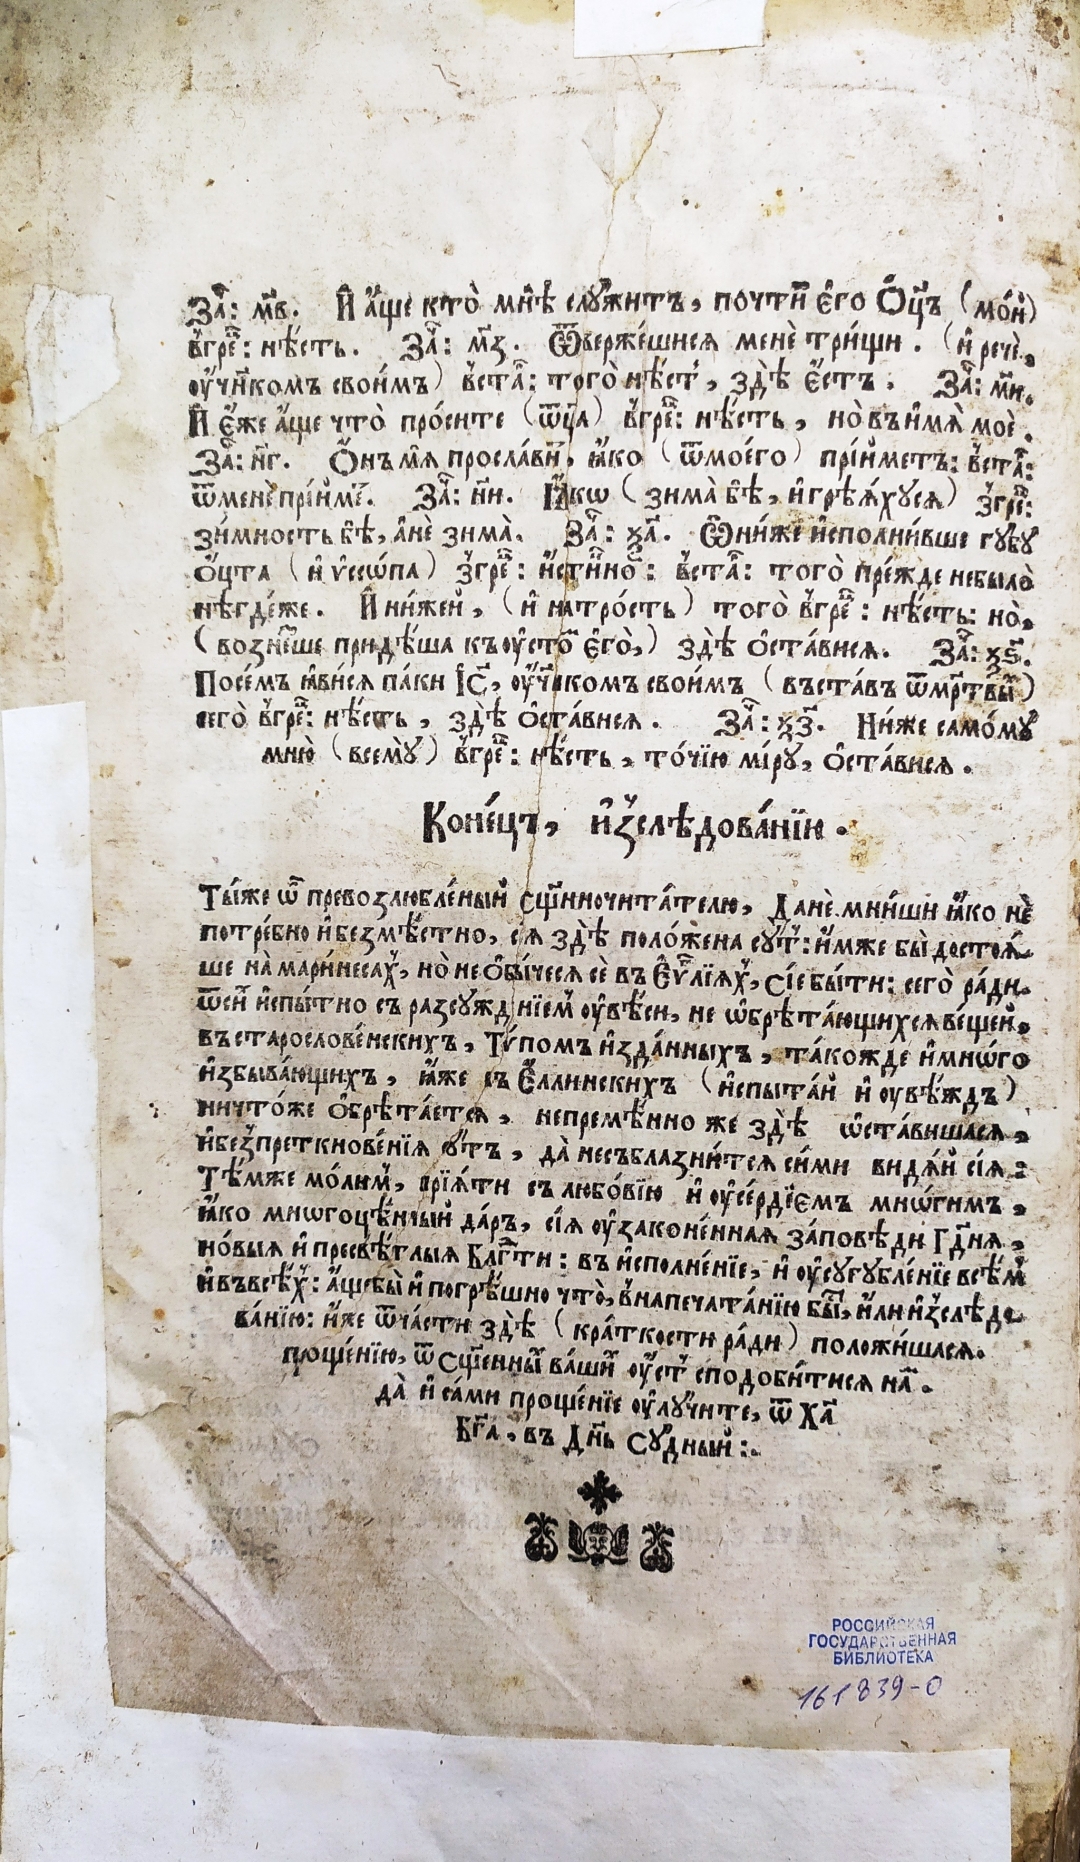 За҃: м҃в. И҆ а҆́ще кто̀ мнѣ̀ слꙋ́житъ, почти́ є҆го ѻ҆ц҃ъ (мо́й)
в҆грⷱ҇е: нѣ́сть. За҃: м҃з. Ѿве́ржешися менѐ три́щи. (и҆ речѐ,
оу҆чн҃комъ свои́мъ) в҆ста҃: того̀ нѣ́ст, здѣ̀ є҆́стъ. За҃: м҃и.
И҆ є҆́же а҆́ще что̀ про́сите (ѿц҃а) в҆гре: нѣ́сть, но̀ въ и҆́мѧ̀ моѐ.
За҃: н҃г. Ѻ҆́нъ мѧ̀ просла́витъ, ꙗ҆́ко (ѿ моегѡ) прїи́метъ: в҆ста҃:
ѿменѐ прїи́ме. За҃: н҃и. Ꙗ҆́кѡ (зима̀ бѣ̀, и҆ грѣѧ́хꙋсѧ) з҆гре:
зи́мность бѣ̀, а҆нѐ зима̀. За҃: ѯ҃а. Ѻ҆ни́же и҆спо́лнивше гꙋ́бꙋ
ѻ҆́цта (и҆ ѵ҆ссѡ́па) з҆гре: и҆́стинно: в҆ста: того̀ пре́жде небыло̀
нѣгде́же. И҆ ни́жей, (и҆ на тро́сть) того̀ в҆гре: нѣ́сть: но̀,
(возне́сше придѣ́ша къ оу҆сто є҆гѡ̀,) здѣ̀ ѡ҆ста́висѧ. За҃: ѯ҃ѕ.
Посе́мъ ꙗ҆ви́сѧ па́ки І҆с҃, оу҆ч҃нкомъ свои́мъ (въста́въ ѿ мр҃твы)
сего̀ в҆гре: нѣ́сть, здѣ̀ ѡ҆ста́висѧ. За҃: ѯ҃з. Ни́же само́мꙋ
мню̀ (всемꙋ̀) в҆гре: нѣ́сть, то́чїю мі́рꙋ, ѡ҆ста́висѧ.
Коне́цъ, и҆зслѣдова́нїю.
Ты́же ѽ превозлюбле́ный сщ҃енночита́телю, Да не мни́ши ꙗ҆́ко не
потре́бно и҆ безмѣ́стно, сїѧ̀ здѣ̀ поло́жена сꙋ́т: и҆́мже бы̀ достоѧ́
ше на̀ мари́несах, но̀ не ѻ҆бы́чесѧ сѐ въ Є҆ѵ҃лїѧх, сїе бы́ти: сего̀ ра́ди,
ѿсей и҆спы́тно съ разсꙋжде́нїем оу҆вѣ́си, не ѡ҆брѣта́ющихсѧ ве́щей,
въ старослове́нскихъ, Тѵ́помъ и҆зда́нныхъ, та́кожде и҆ мнѡ́го
и҆збыва́ющихъ, ꙗ҆́же съ Є҆́ллинскихъ (и҆спыта́й и҆ оувѣ́ждъ)
ничто́же ѡ҆брѣта́етсѧ, непремѣ́нно же здѣ̀ ѡ҆ста́вишасѧ,
и҆ безпреткнове́нїѧ сꙋ́тъ, да̀ несъблазни́тсѧ си́ми видѧ́й сїѧ̀:
Тѣ́мже мо́лим, прїѧ́ти съ любо́вїю и҆ оу҆се́рдїемъ мнѡ́гимъ,
ꙗ҆́ко многоцѣ́нный да́ръ, сїѧ̀ оу҆законе́ннаѧ за́повѣди Гд҃нѧ,
но́выѧ и҆ пресвѣ́тлыѧ Благ҃ти: въ и҆сполне́нїе, и҆ оу҆сꙋгꙋбле́нїе всѣ́м
и҆ въ всѣ́х: а҆́ще бы̀ и҆ погрѣ́шно что̀, в҆напечата́нїю бы, и҆́ли и҆зслѣдо
ва́нїю: и҆́же ѿча́сти здѣ̀ (кра́ткости ра́ди) положи́шасѧ.
проще́нїю, ѿ сщ҃енны ва́ши оу҆́ст сподоби́тисѧ на.
да̀ и҆ са́ми проще́нїе оу҆лꙋ́чите, ѿ Хс҃а
Бг҃а, въ Дн҃ь Сꙋ́дный:.
РОССИЙСКАЯ
ГОСУДАРСТВЕННАЯ
БИБЛИОТЕКА
161839-0